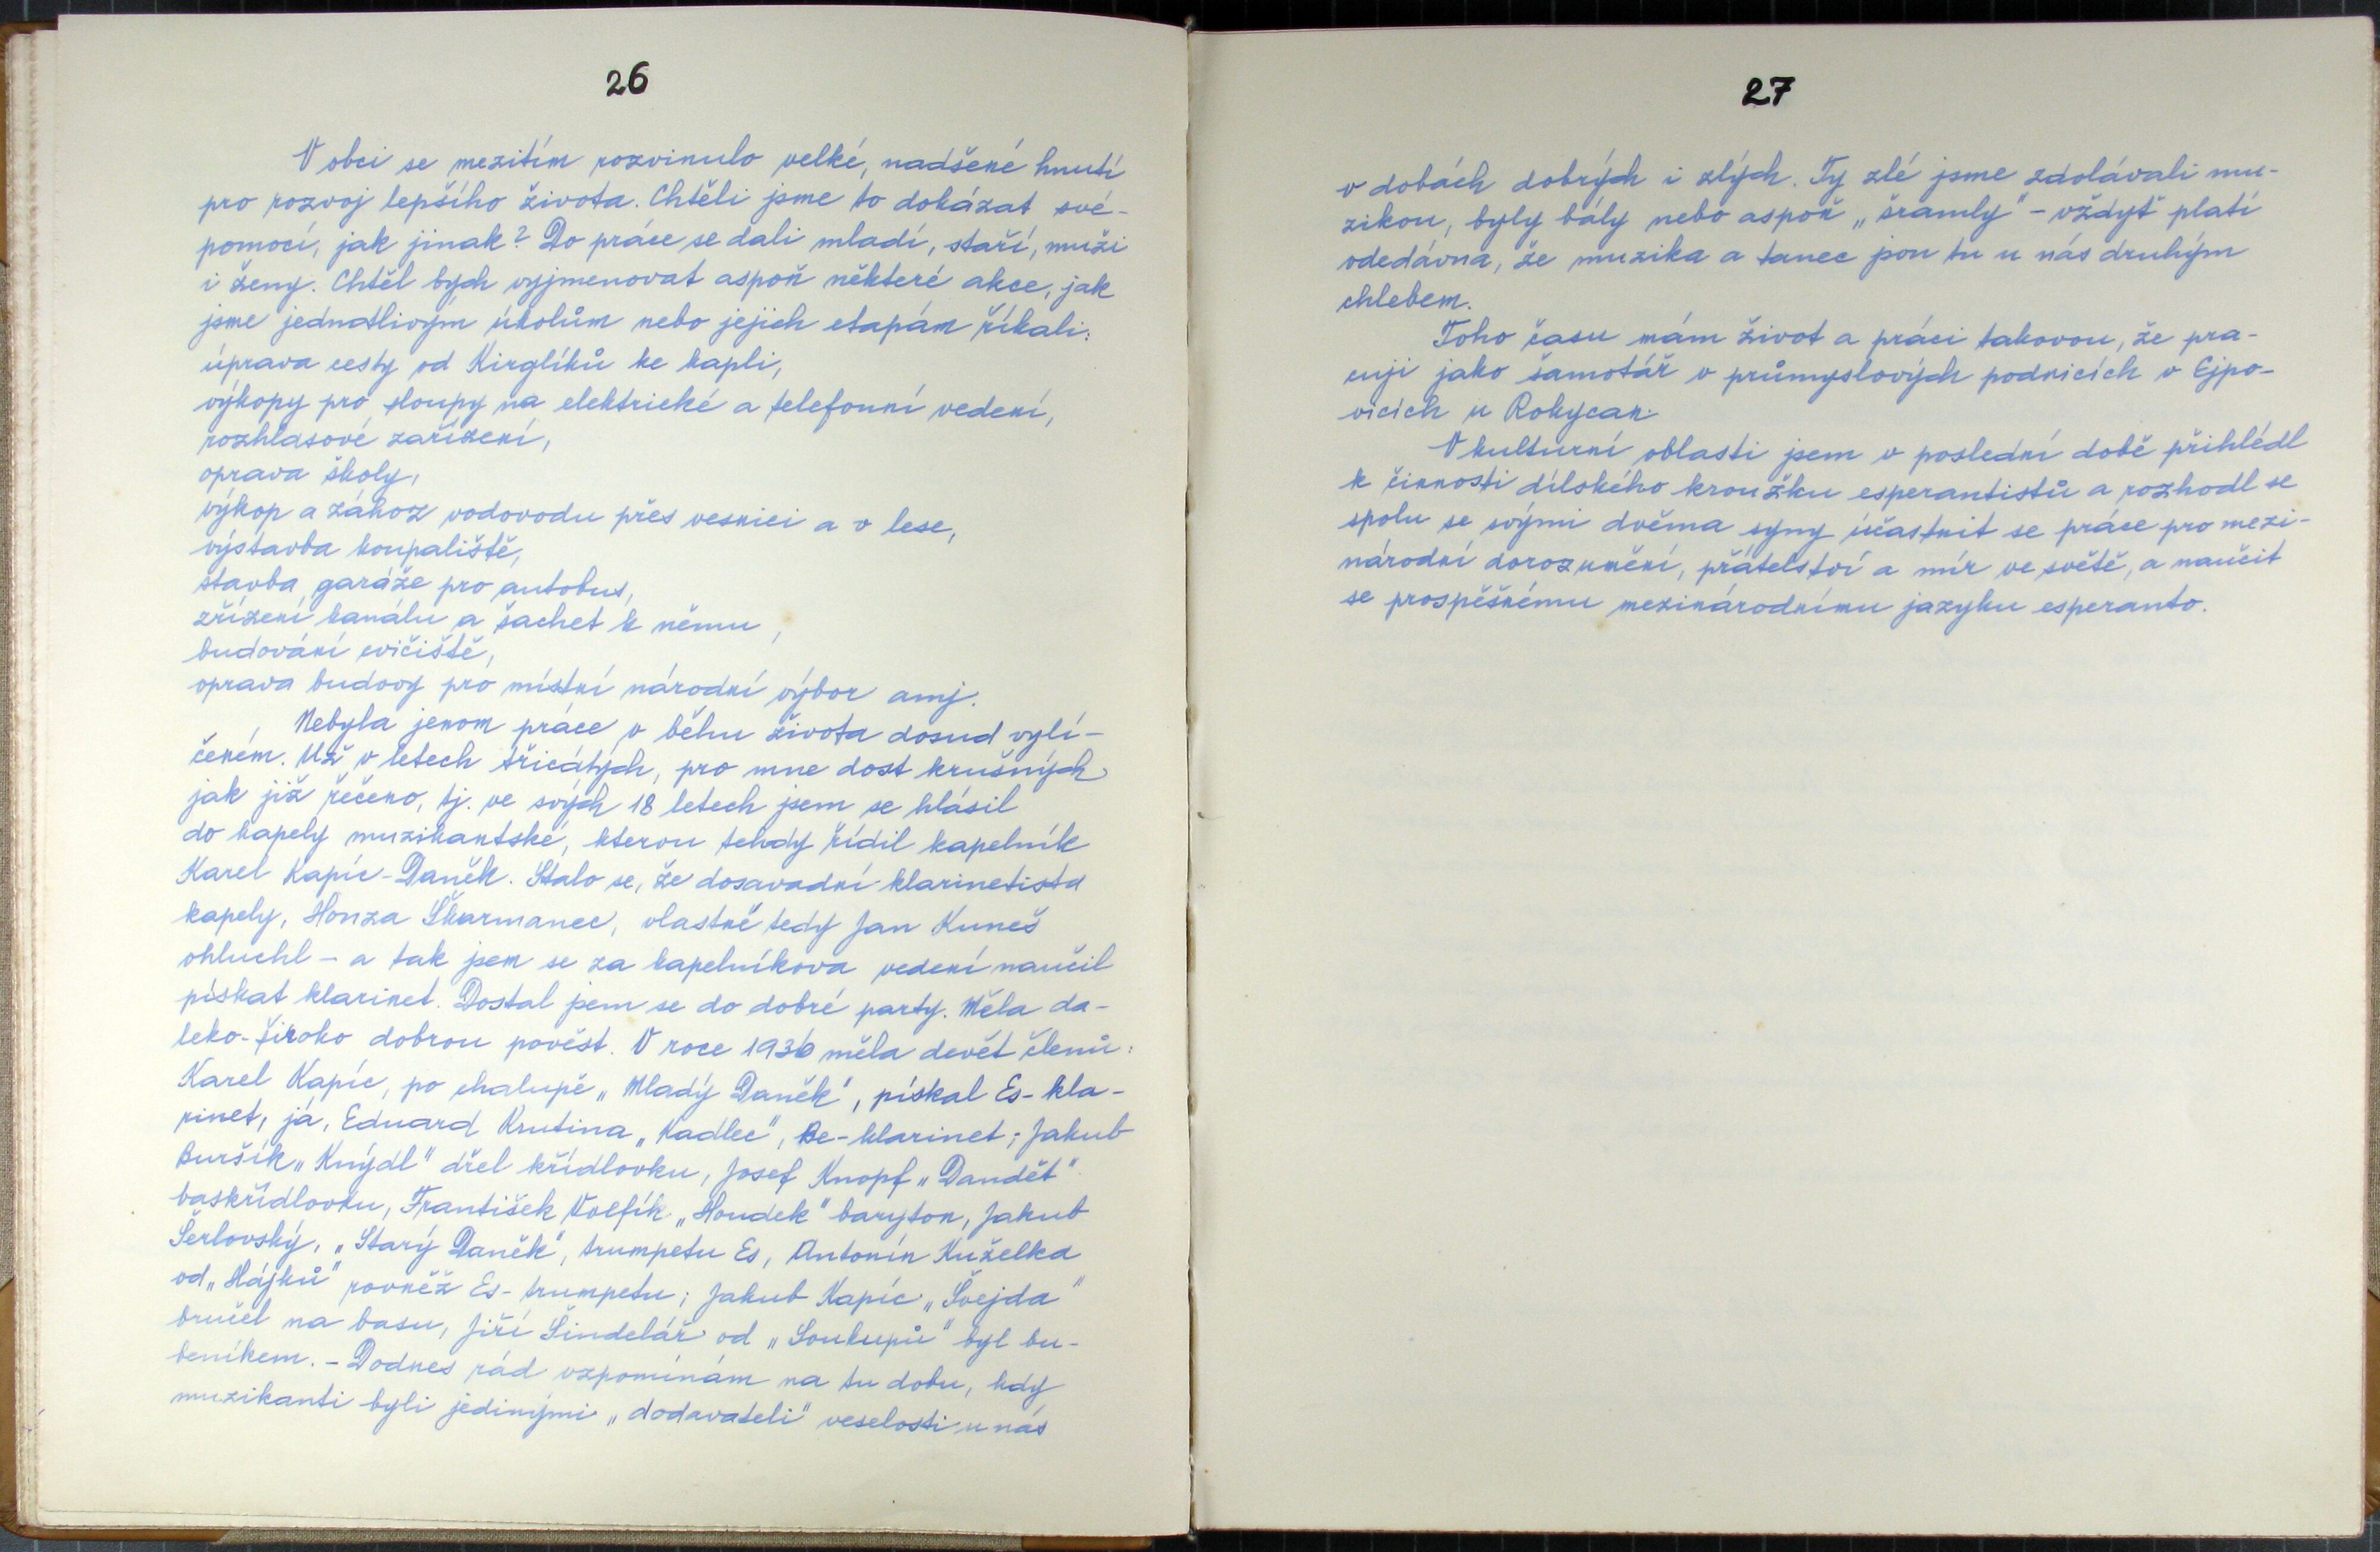 26
V obci se mezitím rozvinulo velké, nadšené hnutí
pro rozvoj lepšího života. Chtěli jsme to dokázat své-
pomocí, jak jinak? Do práce se dali mladí, staří, muži
i ženy. Chtěl bych vyjmenovat aspoň některé akce, jak
jsme jednotlivým úkolům nebo jejich etapám říkali:
úprava cesty od Kirglíků ke kapli,
výkopy pro sloupy na elektrické a telefonní vedení,
rozhlasové zařízení,
oprava školy,
výkop a zához vodovodu přes vesnici a v lese,
výstavba koupaliště,
stavba garáže pro autobus,
zřízení kanálu a šachet k němu,
budování cvičiště,
oprava budovy pro místní národní výbor amj.
Nebyla jenom práce v běhu života dosud vylí-
čeném. Už v letech třicátých, pro mne dost krušných
jak již řečeno, tj. ve svých 18 letech jsem se hlásil
do kapely muzikantské, kterou tehdy řídil kapelník
Karel Kapic-Daněk. Stalo se, že dosavadní klarinetista
kapely, Honza Škarmanec, vlastně tedy Jan Kuneš
ohluchl - a tak jsem se za kapelníkova vedení naučil
pískat klarinet. Dostal jsem se do dobré party. Měla da-
leko-široko dobrou pověst. V roce 1936 měla devět členů:
Karel Kapic, po chalupě „Mladý Daněk", pískal Es-kla-
rinet, já, Eduard Krutina „Kadlec", Be-klarinet; Jakub
Buršík „Knýdl" dřel křídlovku, Josef Knopf „Dandět"
baskřídlovku, František Volfík „Houdek" baryton, Jakub
Šerlovský, „Starý Daněk", trumpetu Es, Antonín Kuželka
od „Hájků" rovněž Es-trumpetu; Jakub Kapic „Švejda"
bručel na basu, Jiří Šindelář od „Soukupů" byl bu-
beníkem. - Dodnes rád vzpomínám na tu dobu, kdy
muzikanti byli jedinými „dodavateli" veselosti u nás
27
v dobách dobrých i zlých. Ty zlé jsme zdolávali mu-
zikou, byly bály nebo aspoň „šramly" - vždyť platí
odedávna, že muzika a tanec jsou tu u nás druhým
chlebem.
Toho času mám život a práci takovou, že pra-
cuji jako šamotář v průmyslových podnicích v Ejpo-
vicích u Rokycan.
V kulturní oblasti jsem v poslední době přihlédl
k činnosti dílského kroužku esperantistů a rozhodl se
spolu se svými dvěma syny účastnit se práce pro mezi-
národní dorozumění, přátelství a mír ve světě, a naučit
se prospěšnému mezinárodnímu jazyku esperanto.